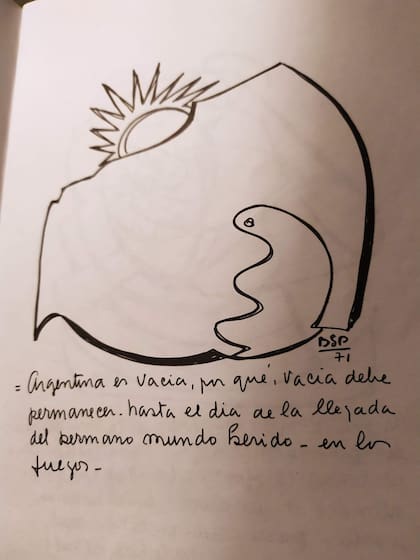 BSP
71
= Argentina es vacia, por qué, vacia debe
permanecer. hasta el dia de la llegada
del hermano mundo herido - en los
fuegos -